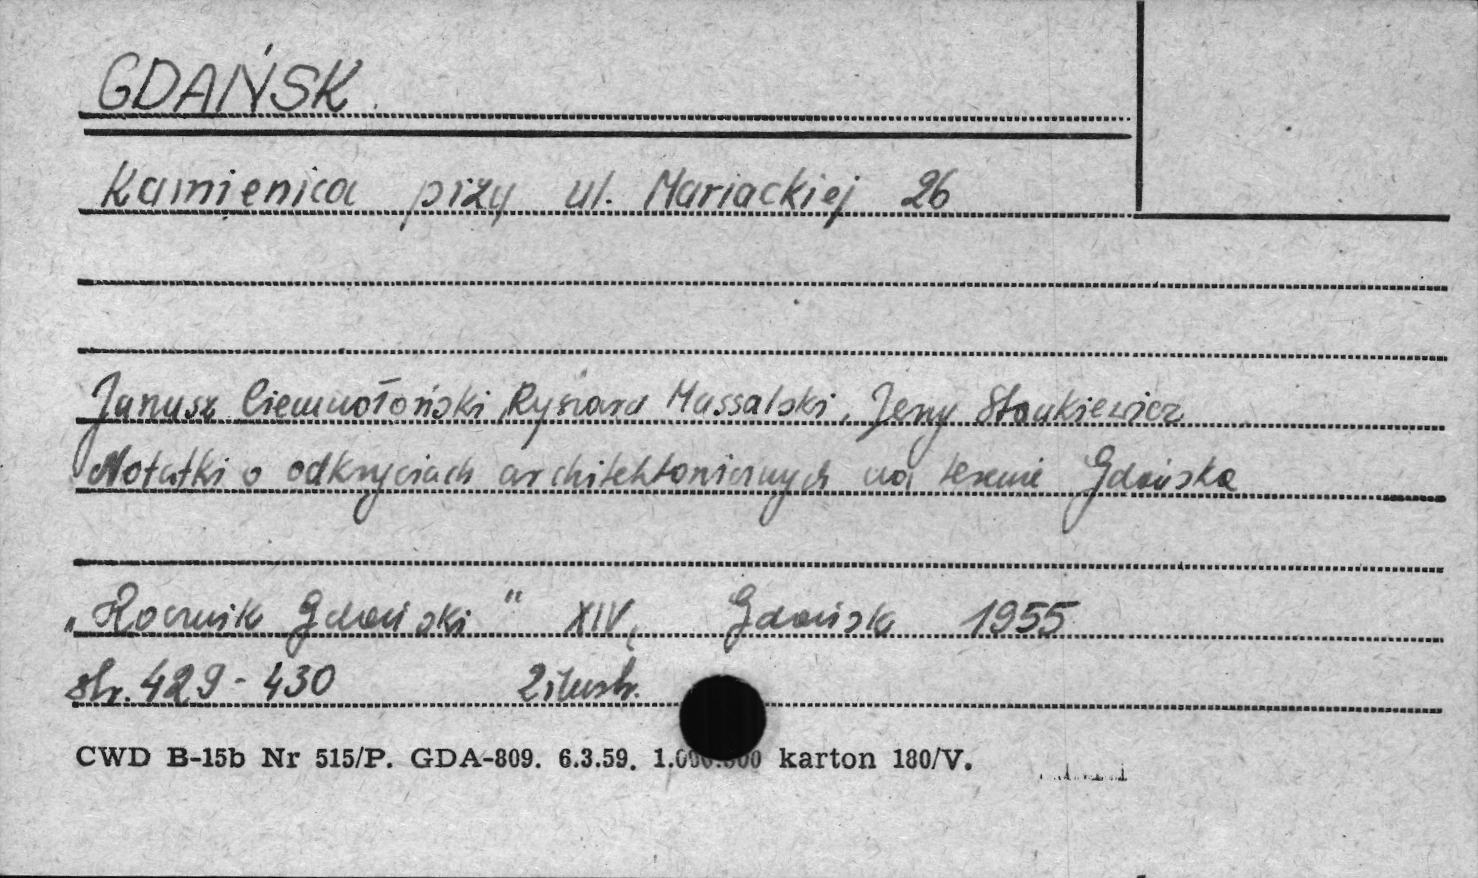 GDAŃSK
Kamienica przy ul. Mariackiej 26
Janusz Ciemnołoński, Ryszard Massalski, Jerzy Stankiewicz
Notatki o odkryciach architektonicznych na terenie Gdańska
„Rocznik Gdański" XIV, Gdańsk 1955
str. 429-430 2 ilustr.
CWD B-15b Nr 515/P. GDA-809. 6.3.59. 1.000.000 karton 180/V.